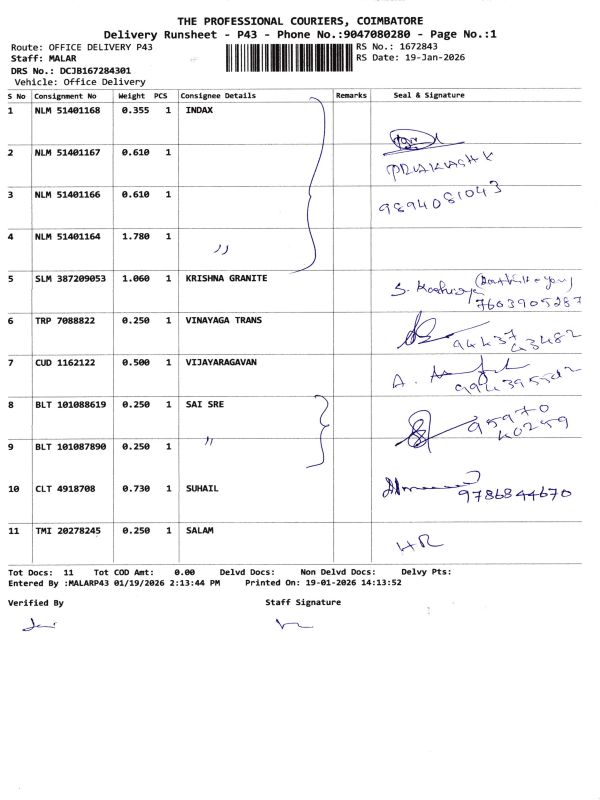 THE PROFESSIONAL COURIERS, COIMBATORE
Delivery Runsheet - P43 - Phone No.:9047080280 - Page No.:1
Route: OFFICE DELIVERY P43
Staff: MALAR
DRS No.: DCJB167284301
Vehicle: Office Delivery
RS No.: 1672843
RS Date: 19-Jan-2026
S No Consignment No Weight PCS Consignee Details Remarks Seal & Signature
1 NLM 51401168 0.355 1 INDAX
2 NLM 51401167 0.610 1 PRAKASH K
3 NLM 51401166 0.610 1 9894081043
4 NLM 51401164 1.780 1 "
5 SLM 387209053 1.060 1 KRISHNA GRANITE S. 7603905287
6 TRP 7088822 0.250 1 VINAYAGA TRANS 94437 43482
7 CUD 1162122 0.500 1 VIJAYARAGAVAN A.
8 BLT 101088619 0.250 1 SAI SRE 95970 40259
9 BLT 101087890 0.250 1 "
10 CLT 4918708 0.730 1 SUHAIL 9786844670
11 TMI 20278245 0.250 1 SALAM HR
Tot Docs: 11 Tot COD Amt: 0.00 Delvd Docs: Non Delvd Docs: Delvy Pts:
Entered By :MALARP43 01/19/2026 2:13:44 PM Printed On: 19-01-2026 14:13:52
Verified By Staff Signature